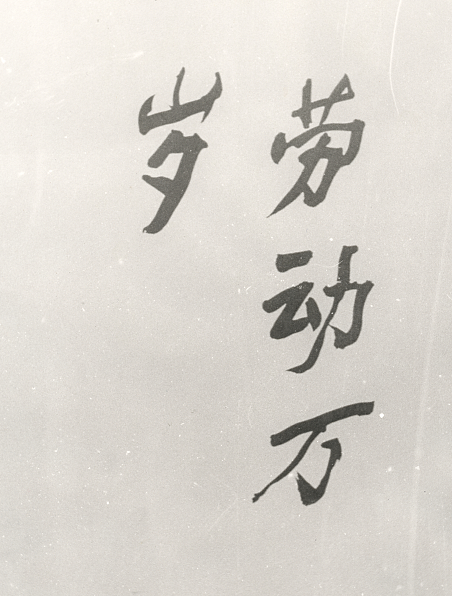 劳动万
岁